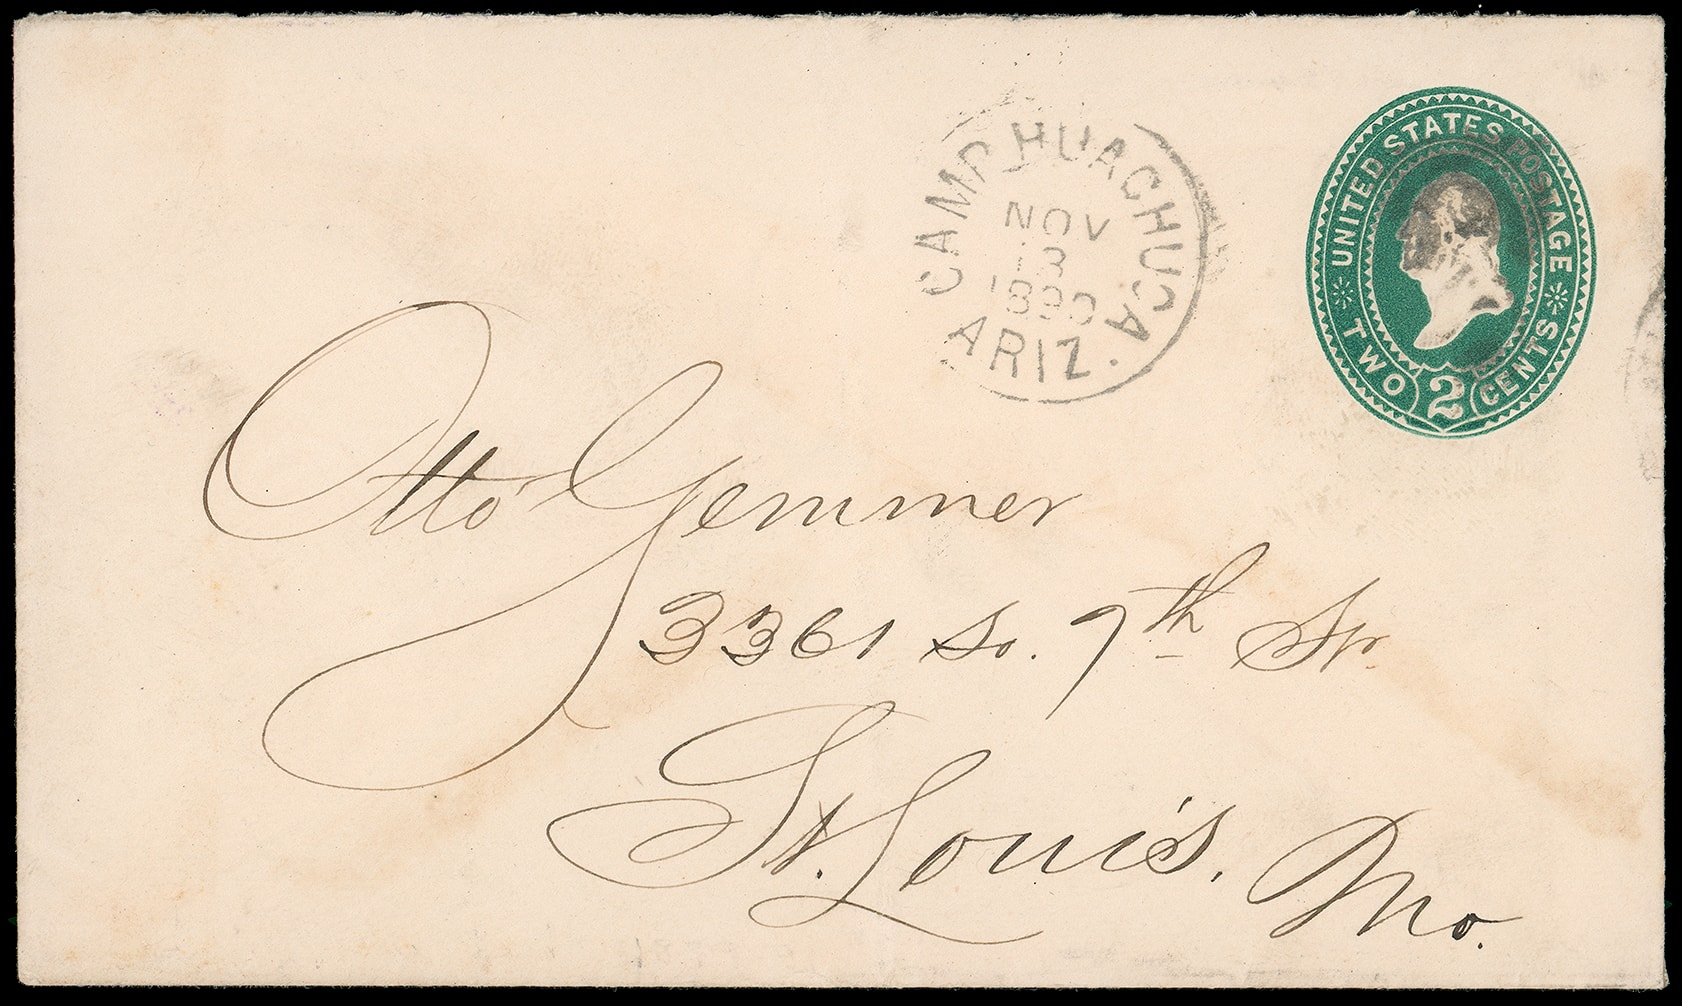 CAMP HUACHUCA
NOV
13
1890
ARIZ.
UNITED STATES POSTAGE
TWO 2 CENTS
Otto Gemmer
3361 So. 7th Str.
St. Louis, Mo.